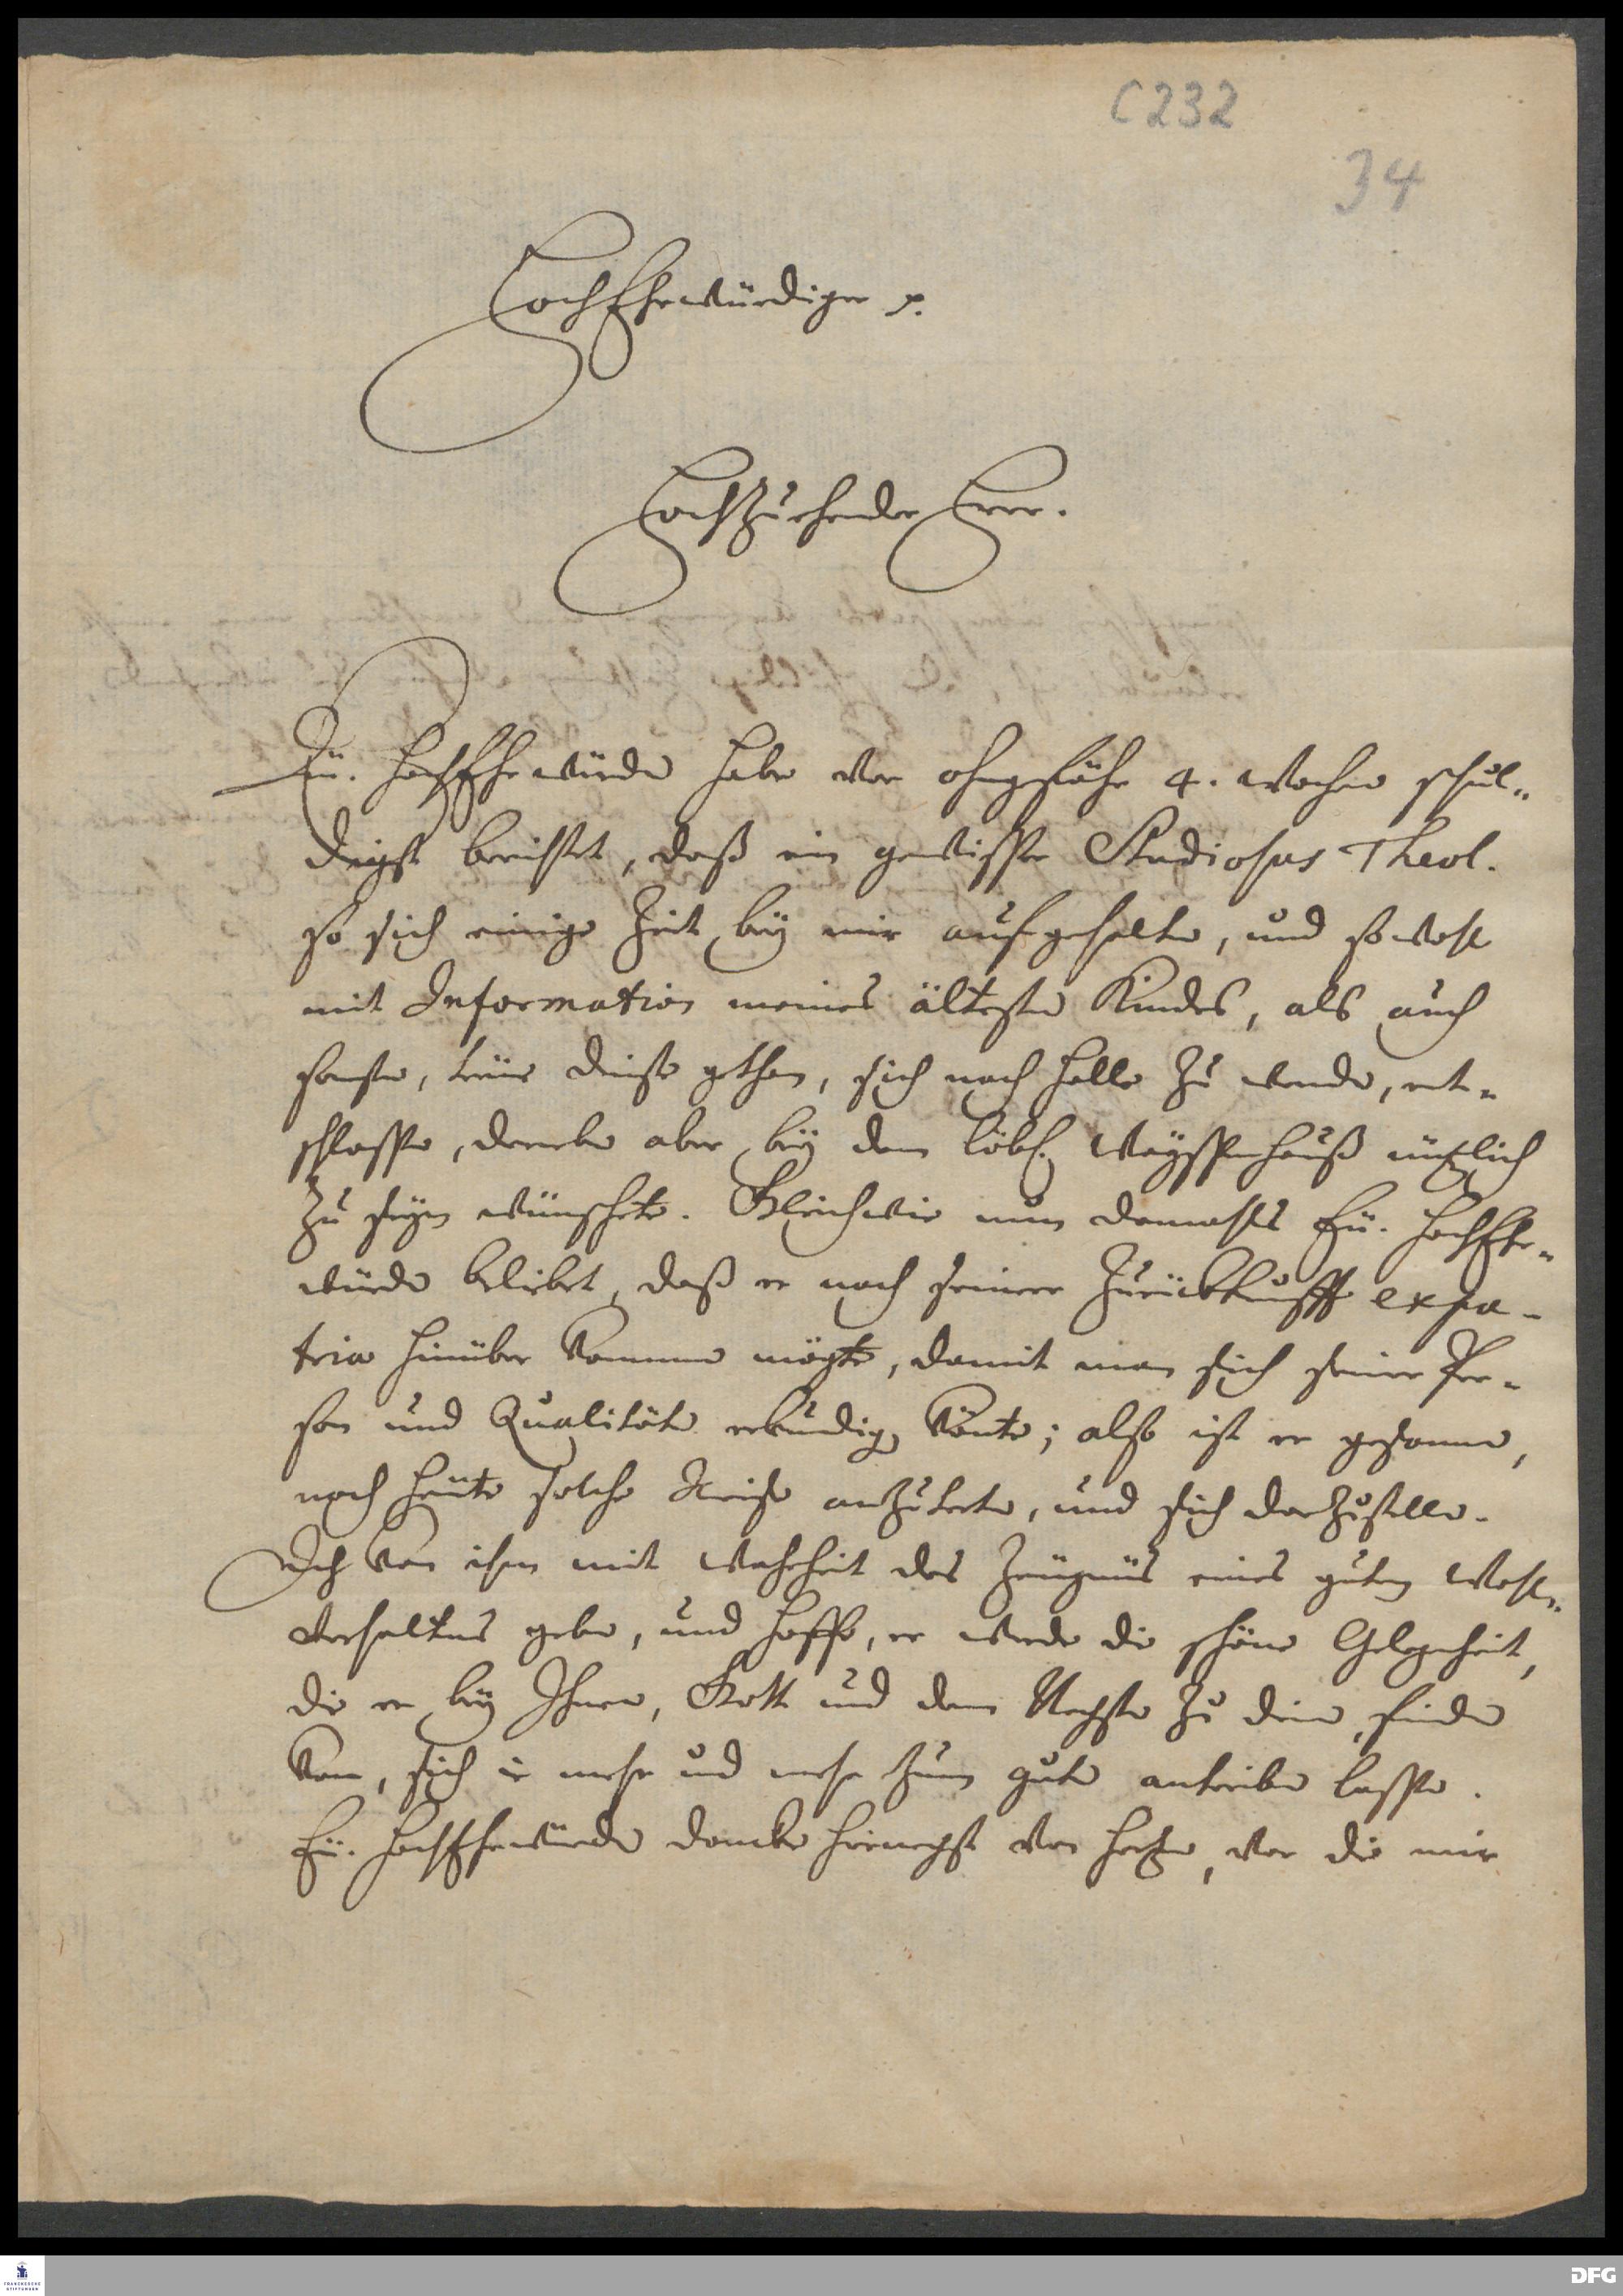 C232
34
HochEhrwürdiger p.
HochZuehrender Herr.
Eü. HochEhrwürden habe vor ohngefähr 4. Wochen schul„
digst berichtet, daß ein gewisser Studiosus Theol.
so sich einige Zeit bey mir aufgehalten, und sowohl
mit Information meines ältesten Kindes, als auch
sonsten, treüe dienste gethan, sich nach Halle zu wenden, ent„
schlossen, daneben aber bey dem löbl. Wayssenhauß nützlich
zu seyn wünschete. Gleichwie nun damahls Eü. HochEhr„
würden beliebet, daß er nach seiner Zurückkunfft ex pa-
tria hinüber kommen mögte, damit man sich seiner Per„
son und Qualitäten erkundigen könte; also ist er gesonnen,
noch heüte solche Reise anzutreten, und sich darzustellen.
Ich kan ihm mit Wahrheit das Zeügnüs eines guten Wohl„
verhaltens geben, und hoffe, er werde die schöne Gelegenheit,
die er bey Ihnen, Gott und dem Nechsten zu dienen, finden
kan, sich ie mehr und mehr zum guten antreiben lassen.
Eü. HochEhrwürden dancke hiernechst von Hertzen, vor die mir
FRANCKESCHE
STIFTUNGEN
DFG